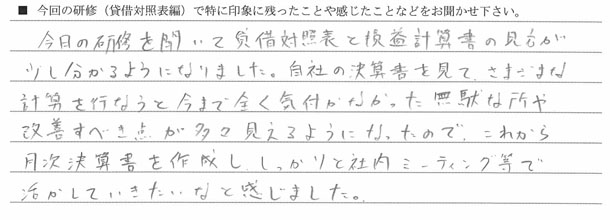 ■ 今回の研修（貸借対照表編）で特に印象に残ったことや感じたことなどをお聞かせ下さい。
今日の研修を聞いて貸借対照表と損益計算書の見方が
少し分かるようになりました。自社の決算書を見て、さまざまな
計算を行なうと今まで全く気付かなかった無駄な所や
改善すべき点が多々見えるようになったので、これから
月次決算書を作成し、しっかりと社内ミーティング等で
活かしていきたいなと感じました。